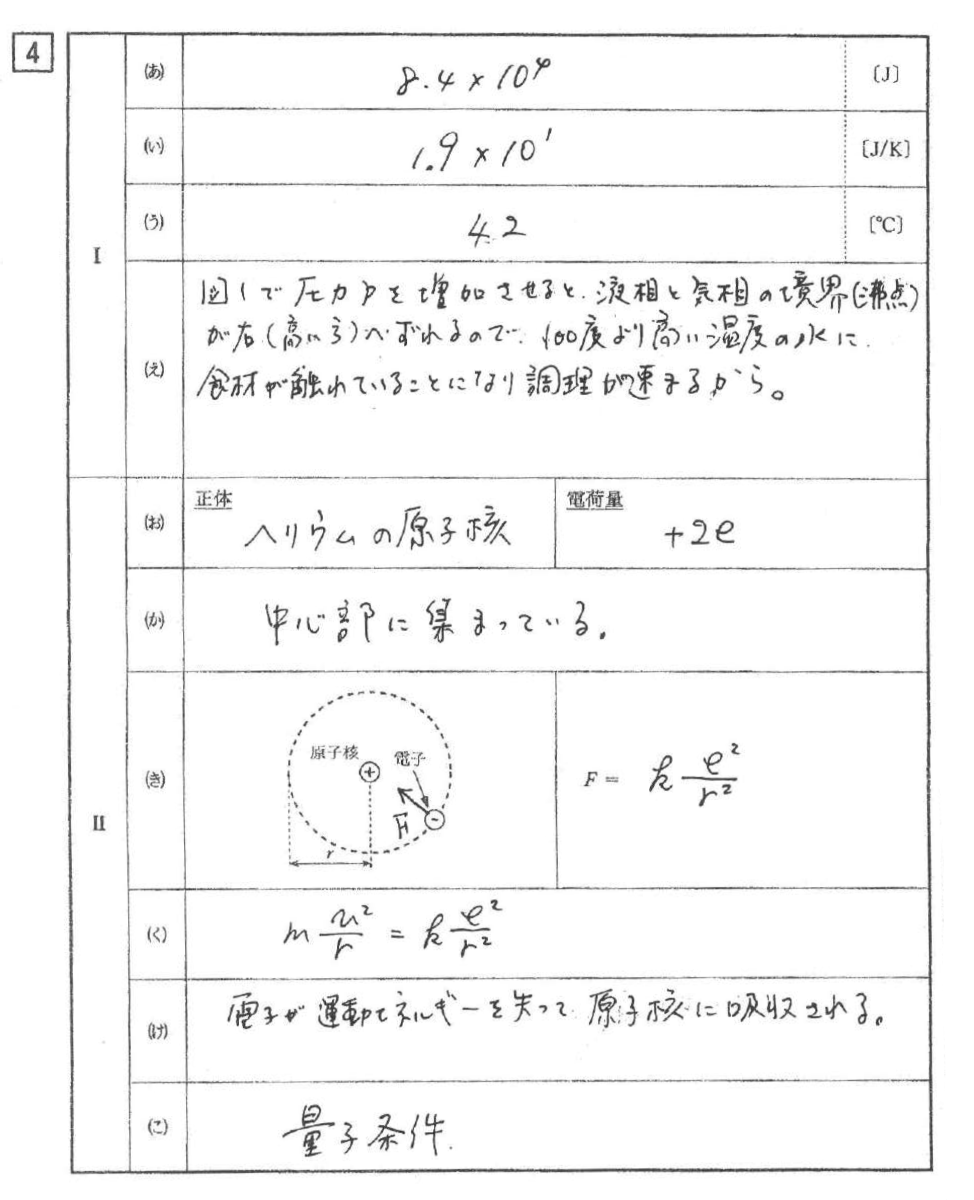 4
I
(あ) 8.4 × 10⁴ 〔J〕
(い) 1.9 × 10¹ 〔J/K〕
(う) 42 〔℃〕
(え)
図1で圧力Pを増加させると、液相と気相の境界(沸点)
が右(高い方)へずれるので、100度より高い温度の水に
食材が触れていることになり調理が速まるから。
II
(お) 正体 ヘリウムの原子核 電荷量 +2e
(か) 中心部に集まっている。
(き)
原子核 電子
+
-
F
r
F = k e²/r²
(く) m u²/r = k e²/r²
(け) 電子が運動エネルギーを失って、原子核に吸収される。
(こ) 量子条件.